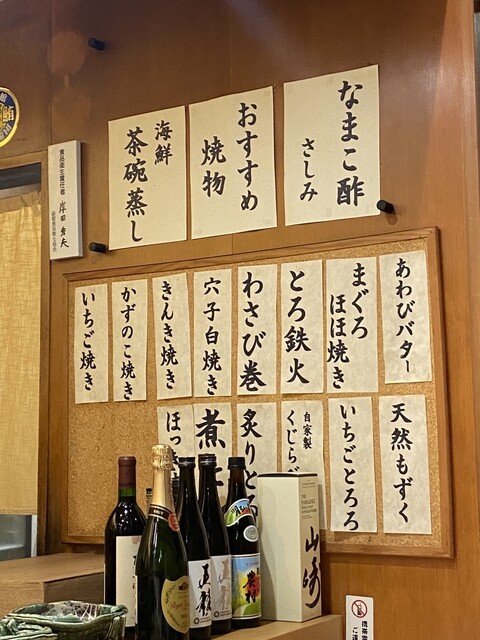 なまこ酢
さしみ
おすすめ
焼物
海鮮
茶碗蒸し
食品衛生責任者
あわびバター
まぐろ
ほほ焼き
とろ鉄火
わさび巻
穴子白焼き
きんき焼き
かずのこ焼き
いちご焼き
天然もずく
いちごとろろ
自家製
くじらベ
炙りとろ
煮
ほっ
山崎